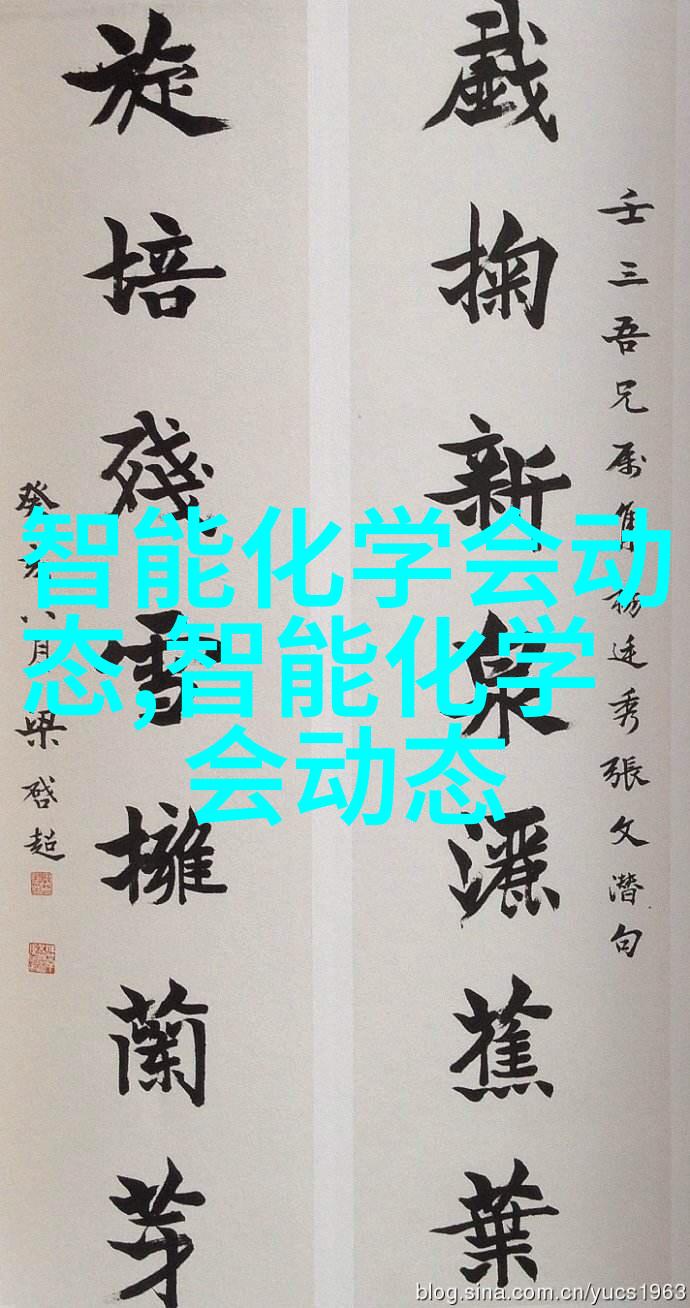 壬三吾兄属集楊廷秀張文潛句
戲掬新泉灑蕉葉
旋培殘雪擁蘭芽
癸亥八月梁啓超
智能化学会动
态,智能化学
会动态
blog.sina.com.cn/yucs1963